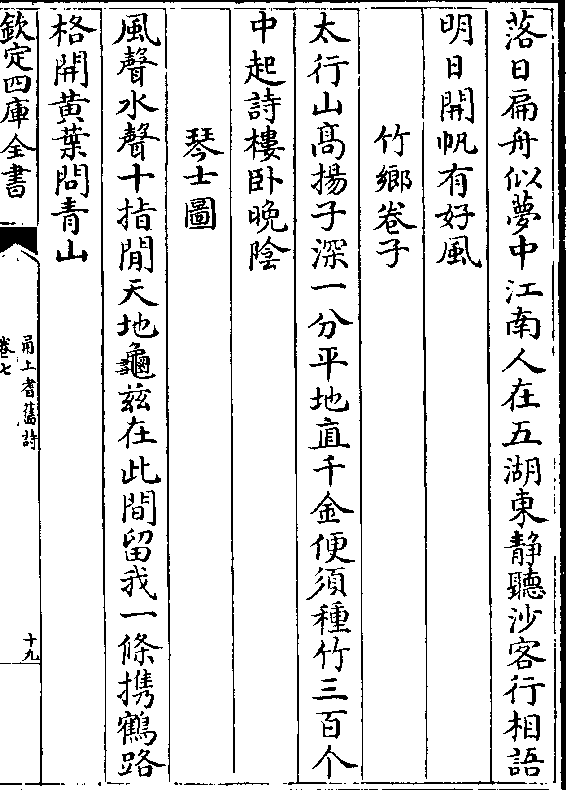 落日扁舟似夢中江南人在五湖東静聽沙客行相語
明日開帆有好風
竹鄉卷子
太行山髙揚子深一分平地直千金便須種竹三百个
中起詩樓臥晩陰
琴士圖
風聲水聲十指間天地龜兹在此間留我一條携鶴路
格開黄葉問青山
欽定四庫全書
甬上耆舊詩
卷七
十九